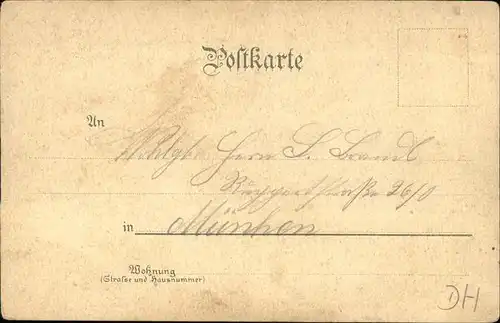 Postkarte
An Wohlgb. Herrn S. Brandl
Ruppertstraße 26/0
in München
Wohnung
(Straße und Hausnummer)
DH